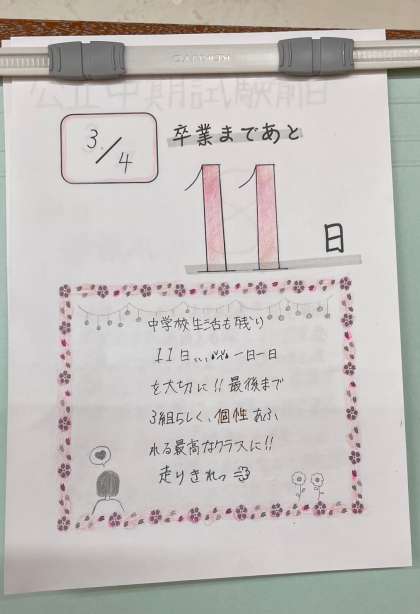 CARRYON
公立中期試験前日
3/4
卒業まであと
11
日
中学校生活も残り
11日、、、 一日一日
を大切に!! 最後まで
3組らしく、個性あふ
れる最高なクラスに!!
走りきれっ